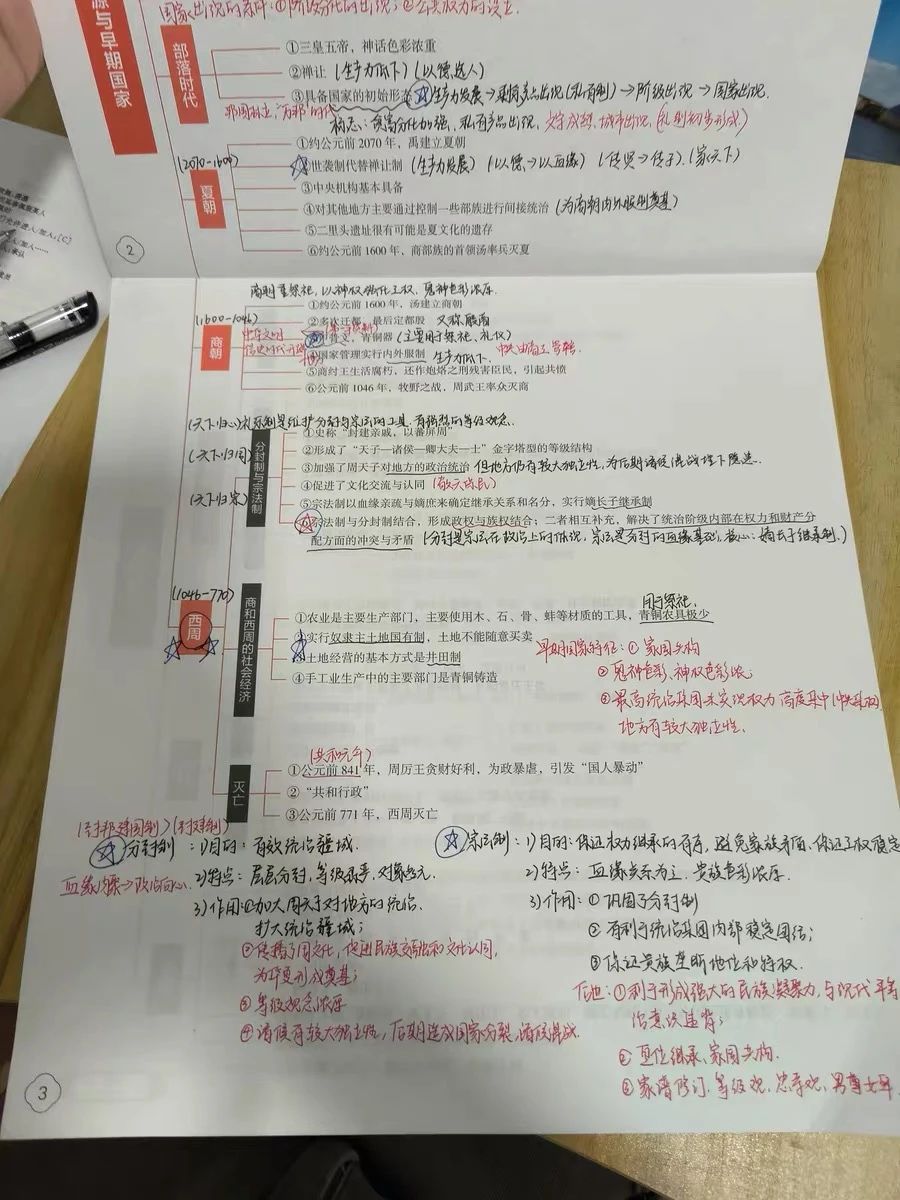 国家出现的条件：①阶级分化的出现；②公共权力的设立.
源与早期国家
部落时代
①三皇五帝，神话色彩浓重
②禅让 (生产力低下) (以德选人)
③具备国家的初始形态 生产力发展→剩余产品出现(私有制)→阶级出现→国家出现.
标志：贫富分化加强，私有产品出现，文字成型，城市出现，(礼制初步形成)
(2070-1600)
夏朝
①约公元前 2070 年，禹建立夏朝
②世袭制代替禅让制 (生产力发展) (以德→以血缘) (传贤→传子). (家天下)
③中央机构基本具备
④对其他地方主要通过控制一些部族进行间接统治 (为商朝内外服制奠基)
⑤二里头遗址很有可能是夏文化的遗存
⑥约公元前 1600 年，商部族的首领汤率兵灭夏
2
商朝重祭祀，以神权强化王权，鬼神色彩浓厚.
(1600-1046)
商朝
①约公元前 1600 年，汤建立商朝
②多次迁都，最后定都殷 又称殷商
③甲骨文，青铜器 (主要用于祭祀、礼仪)
中华文明
信史时代开端
④国家管理实行内外服制 生产力低下.
⑤商纣王生活腐朽，还作炮烙之刑残害臣民，引起共愤
⑥公元前 1046 年，牧野之战，周武王率众灭商
(天下归心) 礼乐制是维护分封与宗法的工具. 有强烈的等级观念.
(天下归周)
(天下归宗)
分封制与宗法制
①史称“封建亲戚，以蕃屏周”
②形成了“天子—诸侯—卿大夫—士”金字塔型的等级结构
③加强了周天子对地方的政治统治 但地方仍有较大独立性，为后期诸侯混战埋下隐患.
④促进了文化交流与认同
⑤宗法制以血缘亲疏与嫡庶来确定继承关系和名分，实行嫡长子继承制
⑥宗法制与分封制结合，形成政权与族权结合；二者相互补充，解决了统治阶级内部在权力和财产分
配方面的冲突与矛盾 (分封是宗法在政治上的体现，宗法是分封的血缘基础，核心：嫡长子继承制.)
(1046-770)
西周
商和西周的社会经济
用于祭祀.
①农业是主要生产部门，主要使用木、石、骨、蚌等材质的工具，青铜农具极少
②实行奴隶主土地国有制，土地不能随意买卖
③土地经营的基本方式是井田制
④手工业生产中的主要部门是青铜铸造
早期国家特征：①家国同构
②鬼神色彩、神权色彩浓；
③最高统治集团未实现权力高度集中
地方有较大独立性.
(共和元年)
灭亡
①公元前 841 年，周厉王贪财好利，为政暴虐，引发“国人暴动”
②“共和行政”
③公元前 771 年，西周灭亡
(封邦建国制) (封建制)
分封制：1)目的：有效统治疆域.
2)特点：层层分封，等级森严，对象多元.
3)作用：①加大周天子对地方的统治.
扩大统治疆域；
②传播了周文化，促进民族交融和文化认同，
为华夏形成奠基；
③等级观念浓厚
④诸侯有较大独立性，后期造成国家分裂，诸侯混战.
宗法制：1)目的：保证权力继承的有序，避免家族矛盾，保证王权稳定
2)特点：血缘关系为主，贵族色彩浓厚.
3)作用：①巩固了分封制
②有利于统治集团内部稳定团结；
③保证贵族垄断地位和特权.
①利于形成强大的民族凝聚力，与现代平等
治意识违背；
②王位继承，家国同构.
③家谱修订，等级观、忠孝观、男尊女卑
3